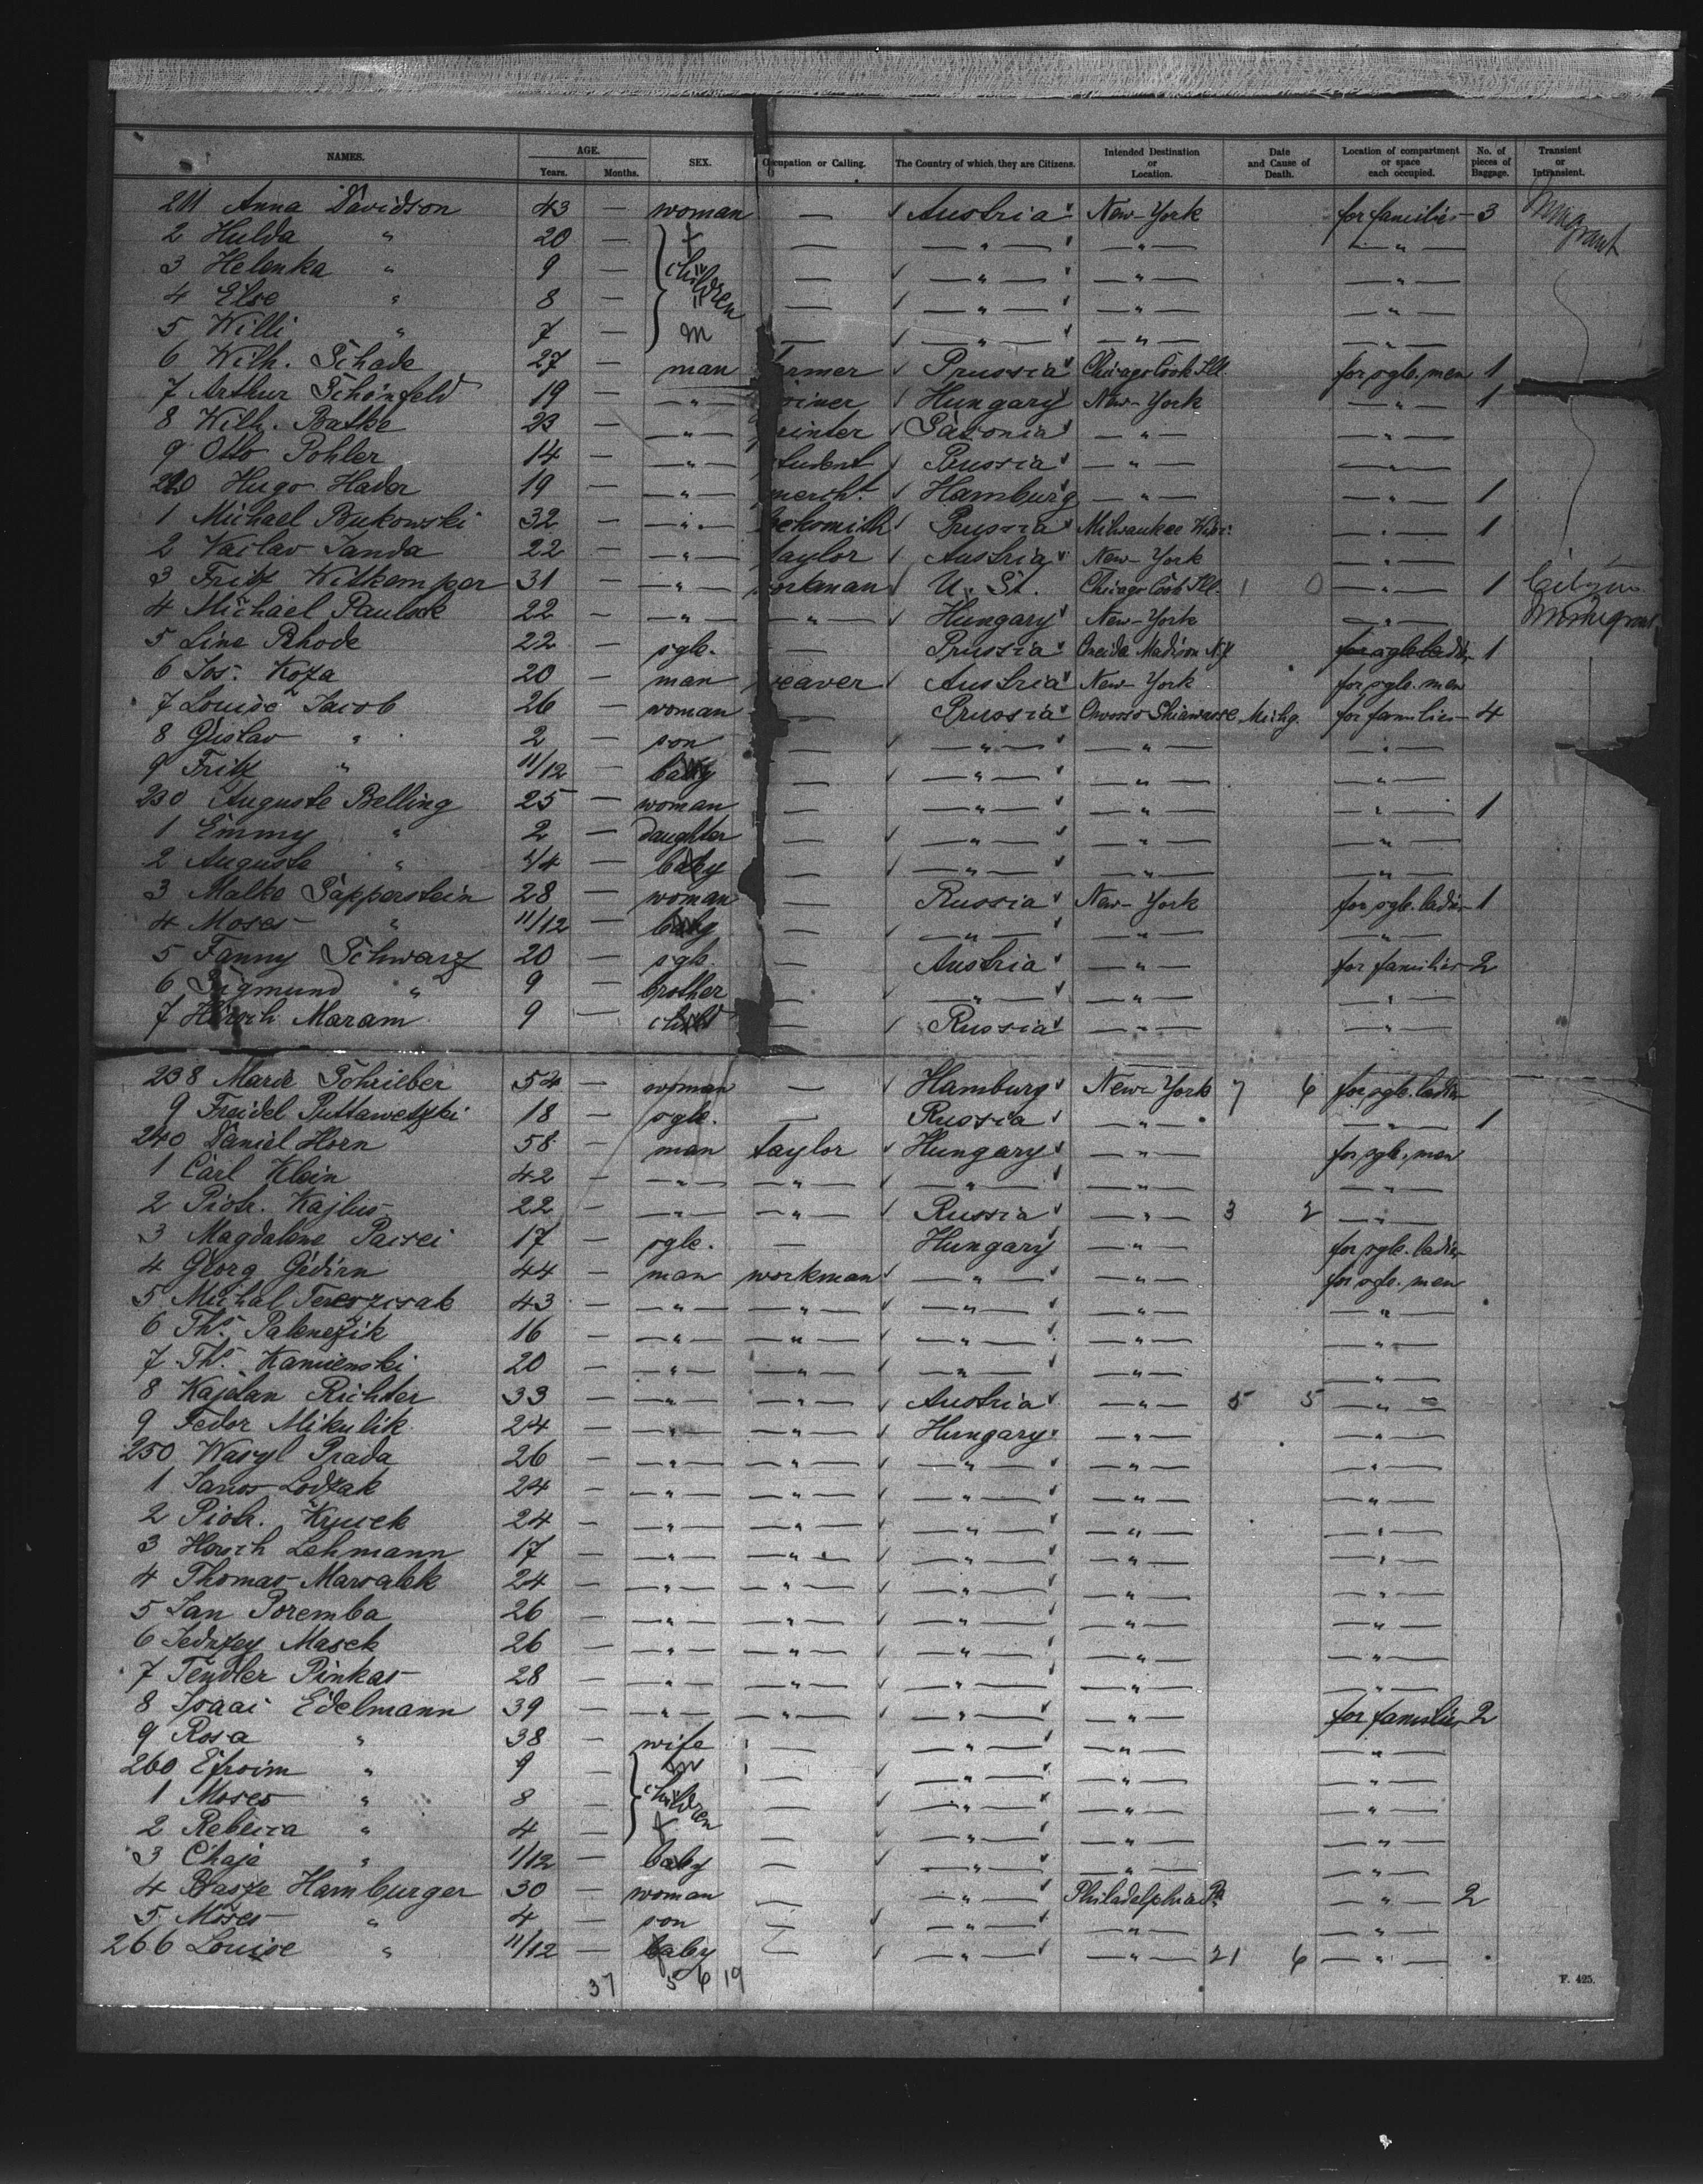 NAMES. AGE. Years. Months. SEX. Occupation or Calling. The Country of which they are Citizens. Intended Destination or Location. Date and Cause of Death. Location of compartment or space each occupied. No. of pieces of Baggage. Transient or Intransient.
211 Anna Davidson 43 — woman — Austria New-York for families 3
2 Hulda " 20 — f — — " — — " — — " —
3 Helenka " 9 — children " — — " — — " — — " —
4 Else " 8 — " — — " — — " — — " —
5 Willi " 7 — m — — " — — " — — " —
6 Wilh. Schade 27 — man armer Prussia Chicago Cook Ill. for sgle. men 1
7 Arthur Schönfeld 19 — — " — oiner Hungary New-York — " — 1
8 Wilh. Bathe 23 — — " — rinter Saxonia — " — — " —
9 Otto Pohler 14 — — " — student Prussia — " — — " —
220 Hugo Hader 19 — — " — mercht. Hamburg — " — — " — 1
1 Michael Bukowski 32 — — " — cksmith Prussia Milwaukee Wisc. — " — 1
2 Vaclav Janda 22 — — " — taylor Austria New-York — " —
3 Fritz Witkemper 31 — — " — orkman U. St. Chicago Cook Ill. 1 0 — " — 1 Citizen
4 Michael Paulock 22 — — " — — " — Hungary New-York — " —
5 Line Rhode 22 — sgle. — Prussia Oneida Madison N.Y. for sgle ladies 1
6 Jos. Koza 20 — man weaver Austria New-York for sgle. men
7 Louise Jacob 26 — woman — Prussia Owosso Shiawasse Michg. for families 4
8 Gustav " 2 — son — — " — — " — — " —
9 Fritz " 11/12 — baby — — " — — " — — " —
230 Auguste Belling 25 — woman — — " — — " — — " — 1
1 Emmy " 2 — daughter — — " — — " — — " —
2 Auguste " /4 — baby — — " — — " — — " —
3 Malke Sapperstein 28 — woman — Russia New-York for sgle. ladies 1
4 Moses " 11/12 — baby — — " — — " — — " —
5 Fanny Schwarz 20 — sgle. — Austria — " — for families 2
6 Sigmund " 9 — brother — — " — — " — — " —
7 Hirsch Maram 9 — child — Russia — " — — " —
238 Marie Schrieber 54 — woman — Hamburg New-York 7 6 for sgle. ladies
9 Freidel Puttawetzki 18 — sgle. — Russia — " — — " — 1
240 Daniel Horn 58 — man taylor Hungary — " — for sgle. men
1 Carl Klein 42 — — " — — " — — " — — " — — " —
2 Piotr. Kajlus 22 — — " — — " — Russia — " — 3 2 — " —
3 Magdalene Pacsei 17 — sgle. — Hungary — " — for sgle. ladies
4 Georg Gedirn 44 — man workman — " — — " — for sgle. men
5 Michal 43 — — " — — " — — " — — " — — " —
6 Ths. Palenezik 16 — — " — — " — — " — — " — — " —
7 Ths. Kamienski 20 — — " — — " — — " — — " — — " —
8 Kajetan Richter 33 — — " — — " — Austria — " — 5 5 — " —
9 Fedor Mikulik 24 — — " — — " — Hungary — " — — " —
250 Wasyl Prada 26 — — " — — " — — " — — " — — " —
1 Janos Lodzak 24 — — " — — " — — " — — " — — " —
2 Piotr. 24 — — " — — " — — " — — " — — " —
3 Hersch Lehmann 17 — — " — — " — — " — — " — — " —
4 Thomas Marsalek 24 — — " — — " — — " — — " — — " —
5 Jan Poremba 26 — — " — — " — — " — — " — — " —
6 Jedrzey Masek 26 — — " — — " — — " — — " — — " —
7 Tendler Pinkas 28 — — " — — " — — " — — " — — " —
8 Isaac Edelmann 39 — — " — — " — — " — — " — for families 2
9 Rosa " 38 — wife — — " — — " — — " —
260 Efroim " 9 — m — — " — — " — — " —
1 Moses " 8 — children — — " — — " — — " —
2 Rebecca " 4 — f — — " — — " — — " —
3 Chaje " 1/12 — baby — — " — — " — — " —
4 Basze Hamburger 30 — woman — — " — Philadelphia Pa. — " — 2
5 Moses " 4 — son — — " — — " — — " —
266 Louise " 11/12 — baby — — " — — " — 21 6 — " —
37 5 6 19
F. 425.